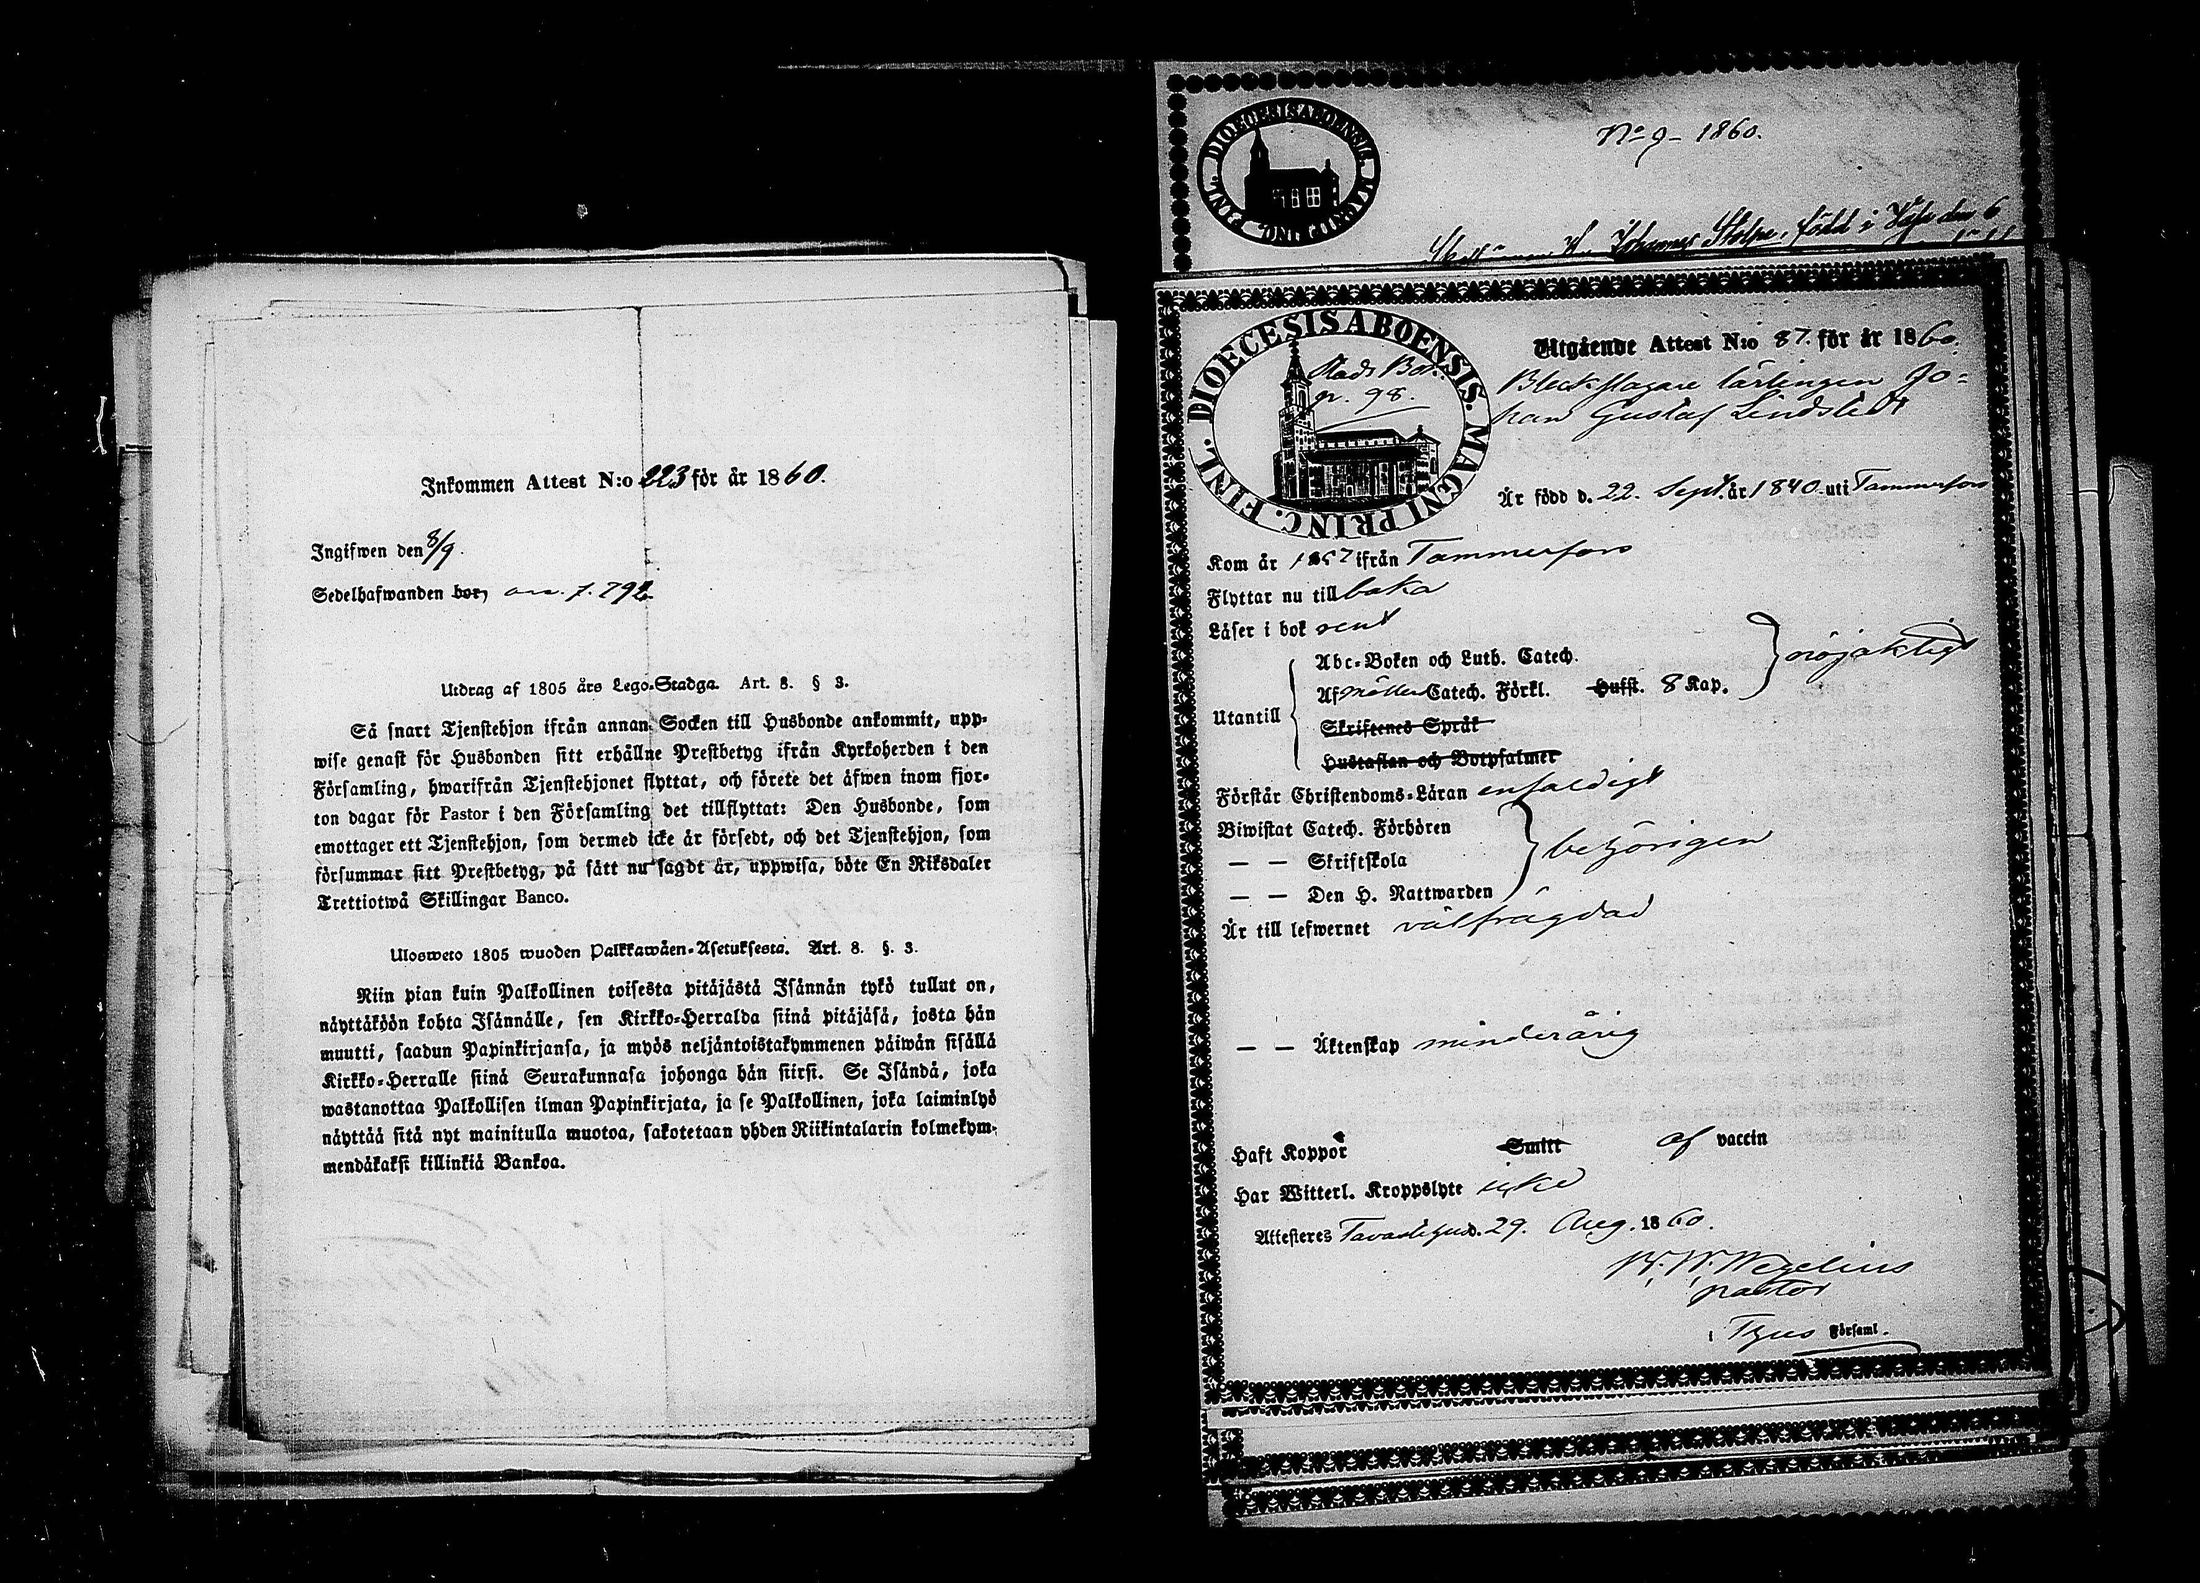 Inkommen Attest N:o 223 för år 1860.
Ingifwen den 8/9.
Sedelhafwanden bor, ann. f. 792
Utdrag af 1805 års Lego-Stadga. Art. 8. § 3.
Så snart Tjenstehjon ifrån annan Socken till Husbonde ankommit, upp-
wise genast för Husbonden sitt erhållne Prestbetyg ifrån Kyrkoherden i den
Församling, hwarifrån Tjenstehjonet flyttat, och förete det äfwen inom fjor-
ton dagar för Pastor i den Församling det tillflyttat: Den Husbonde, som
emottager ett Tjenstehjon, som dermed icke är försedt, och det Tjenstehjon, som
försummar sitt Prestbetyg, på sätt nu sagdt är, uppwisa, böte En Riksdaler
Trettiotwå Skillingar Banco.
Ulosweto 1805 wuoden Palkkawäen-Asetuksesta. Art. 8. §. 3.
Niin pian kuin Palkollinen toisesta pitäjästä Isännän tykö tullut on,
näyttäköön kohta Isännälle, sen Kirkko-Herralda siinä pitäjäsä, josta hän
muutti, saadun Papinkirjansa, ja myös neljäntoistakymmenen päiwän sisällä
Kirkko-Herralle siinä Seurakunnasa johonga hän siirsi. Se Isändä, joka
wastanottaa Palkollisen ilman Papinkirjata, ja se Palkollinen, joka laiminlyö
näyttää sitä nyt mainitulla muotoa, sakotetaan yhden Riikintalarin kolmekym-
mendäkaksi killinkiä Bankoa.
DIOECESIS ABOENSIS. MAGNI PRINC. FINL.
No 9 - 1860.
Johannes Stolpe, född i den 6
DIOECESIS ABOENSIS. MAGNI PRINC. FINL.
p. 98.
Utgående Attest N:o 87. för år 1860.
Bleckslagare lärlingen Jo-
han Gustaf Lindstedt
Är född d. 22. Sept. år 1840 uti Tammerfors
Kom år 1857 ifrån Tammerfors
Flyttar nu tillbaka
Läser i bok rent
Utantill
Abc-Boken och Luth. Catech.
Af Möllers Catech. Förkl. Hufst. 8 Kap.
nöjaktigt
Skriftenes Språk
Hustaflan och Botpsalmer
Förstår Christendoms-Läran enfaldigt
Biwistat Catech. Förhören
— — Skriftskola
— — Den H. Nattwarden
behörigen
Är till lefwernet välfrägdad
— — Äktenskap minderårig
Haft Koppor Smitt af vaccin
Har Witterl. Kroppslyte icke
Attesteres Tavastehus d. 29. Aug. 1860.
Wegelius
pastor
i Thus Förfaml.